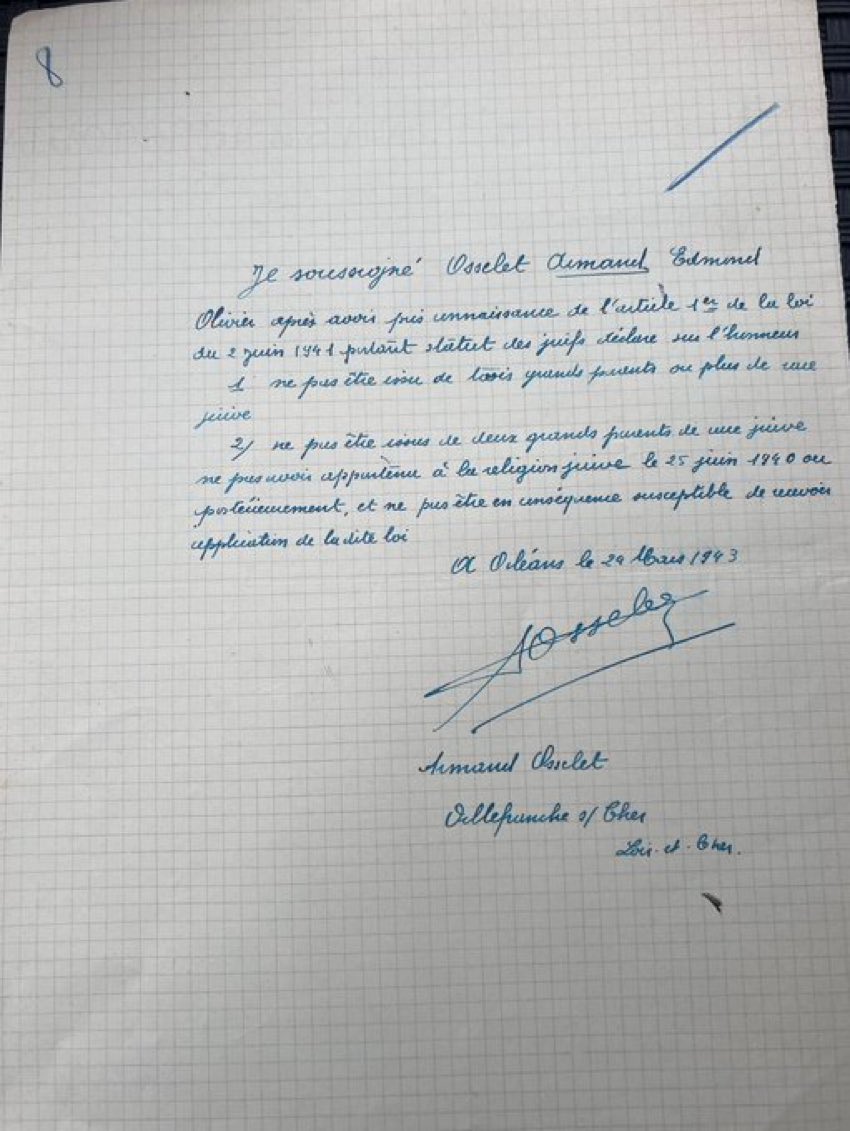 8
Je soussigné Osselet Armand Edmond
Olivier après avoir pris connaissance de l'article 1er de la loi
du 2 juin 1941 portant statut des juifs déclare sur l'honneur
1 ne pas être issu de trois grands parents ou plus de race
juive
2/ ne pas être issus de deux grands parents de race juive
ne pas avoir appartenu à la religion juive le 25 juin 1940 ou
postérieurement, et ne pas être en conséquence susceptible de recevoir
application de la dite loi
A Orléans le 24 Mars 1943
AOsselet
Armand Osselet
Villefranche s/ Cher
Loir-et-Cher.